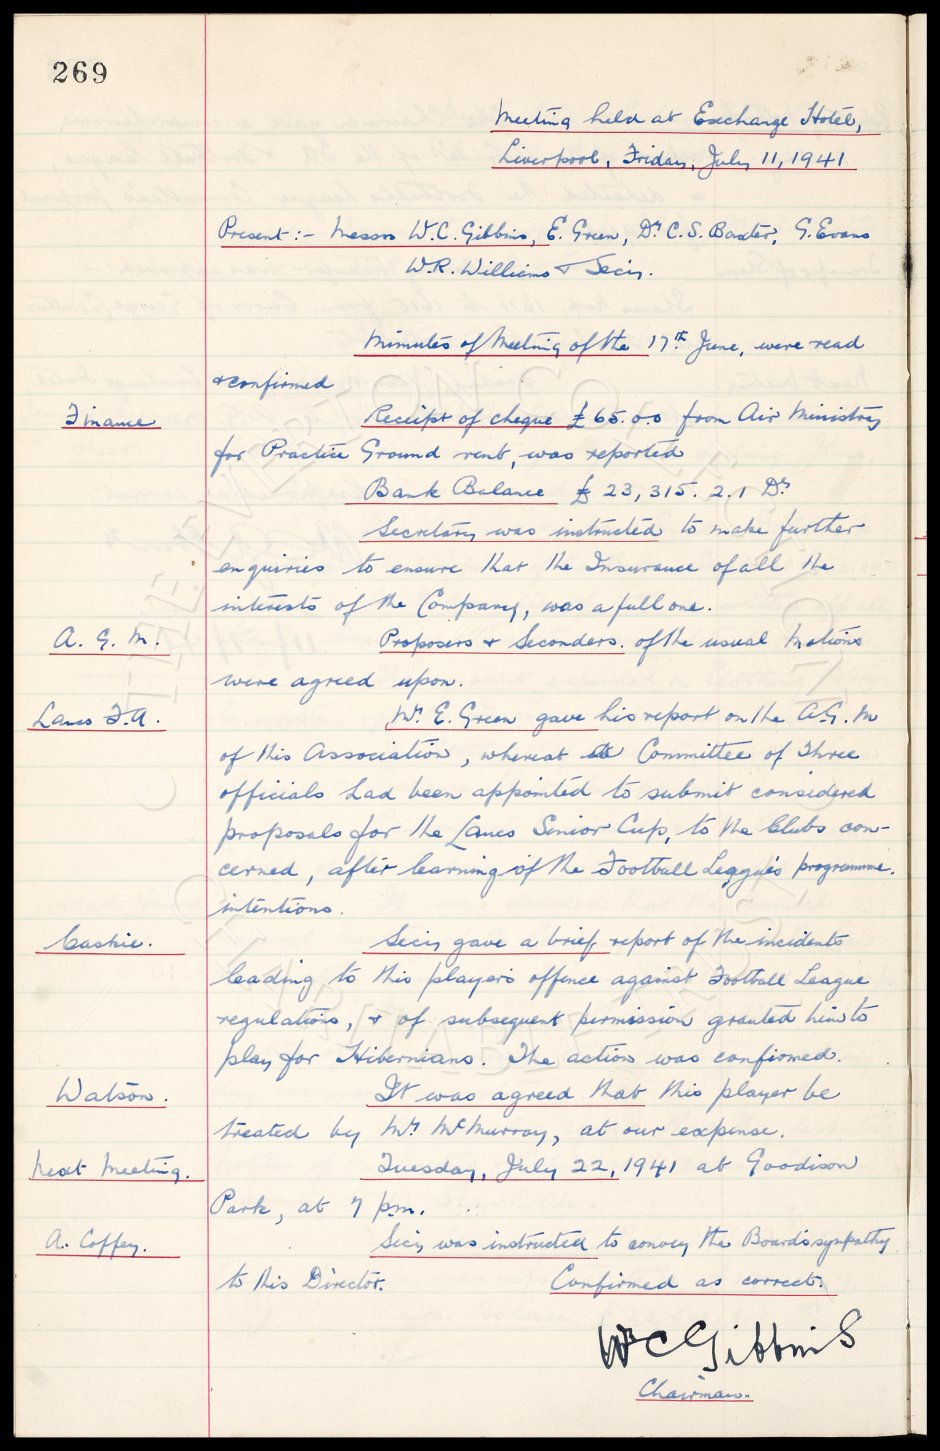 269
Meeting held at Exchange Hotel,
Liverpool, Friday, July 11, 1941.
Present :- Messrs W.C. Gibbins, E. Green, Dr C.S. Baxter, G. Evans
W.R. Williams & Secy.
Minutes of Meeting of the 17th June, were read
& confirmed
Finance
Receipt of cheque £65.0.0 from Air Ministry
for Practice Ground rent, was reported
Bank Balance £ 23,315. 2. 1 Dr
Secretary was instructed to make further
enquiries to ensure that the Insurance of all the
interests of the Company, was a full one.
A. G. M.
Proposers & Seconders. of the usual Motions
were agreed upon.
Lancs F.A.
Mr. E. Green gave his report on the A.G.M
of this Association, whereat Committee of Three
officials had been appointed to submit considered
proposals for the Lancs Senior Cup, to the Clubs con-
cerned, after learning of the Football League's programme.
intentions.
Caskie.
Secy gave a brief report of the incidents
leading to this player's offence against Football League
regulations, & of subsequent permission granted him to
play for Hibernians. The action was confirmed.
Watson.
It was agreed that this player be
treated by Mr. McMurray, at our expense.
Next Meeting.
Tuesday, July 22, 1941 at Goodison
Park, at 7 pm.
A. Coffey.
Secy was instructed to convey the Board's sympathy
to this Director.
Confirmed as correct.
WC Gibbins
Chairman.